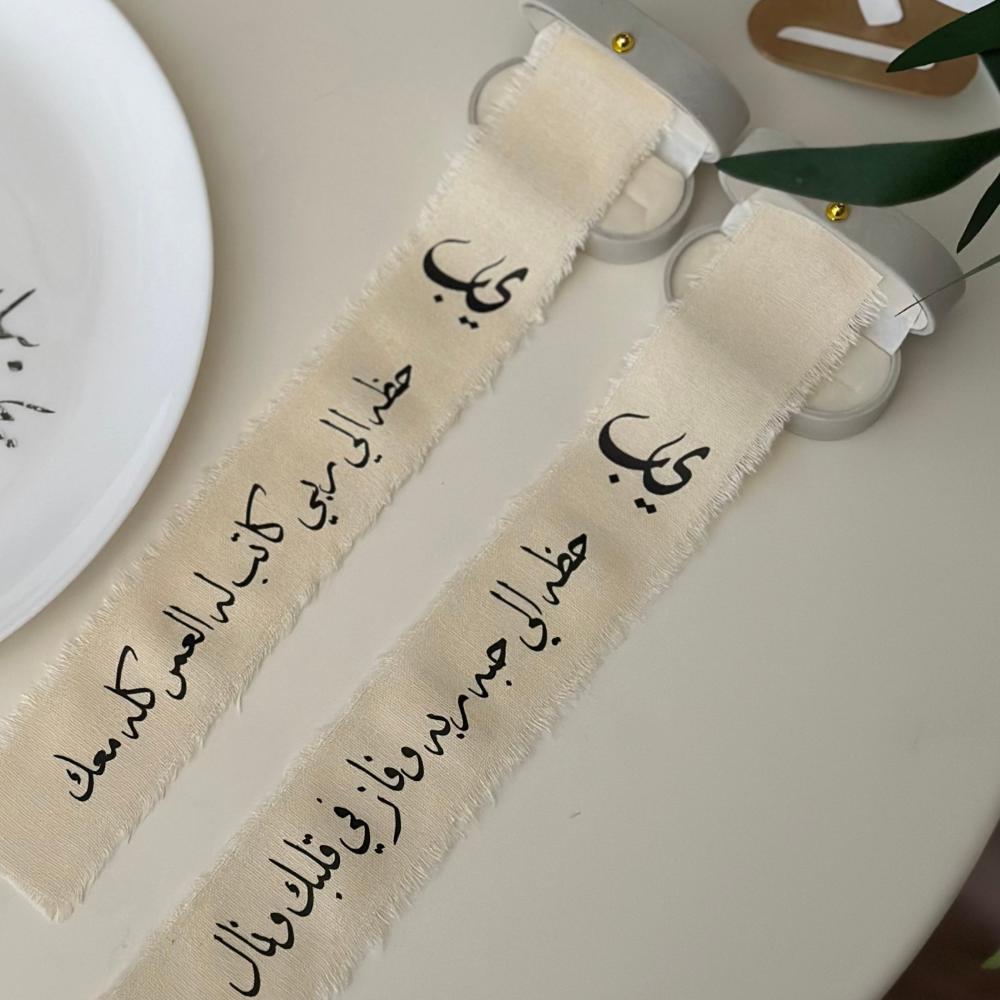 حظه الي ربي كاتب له العمر كله معك
حظه الي حبه ربه وفاز في قلبك ونال